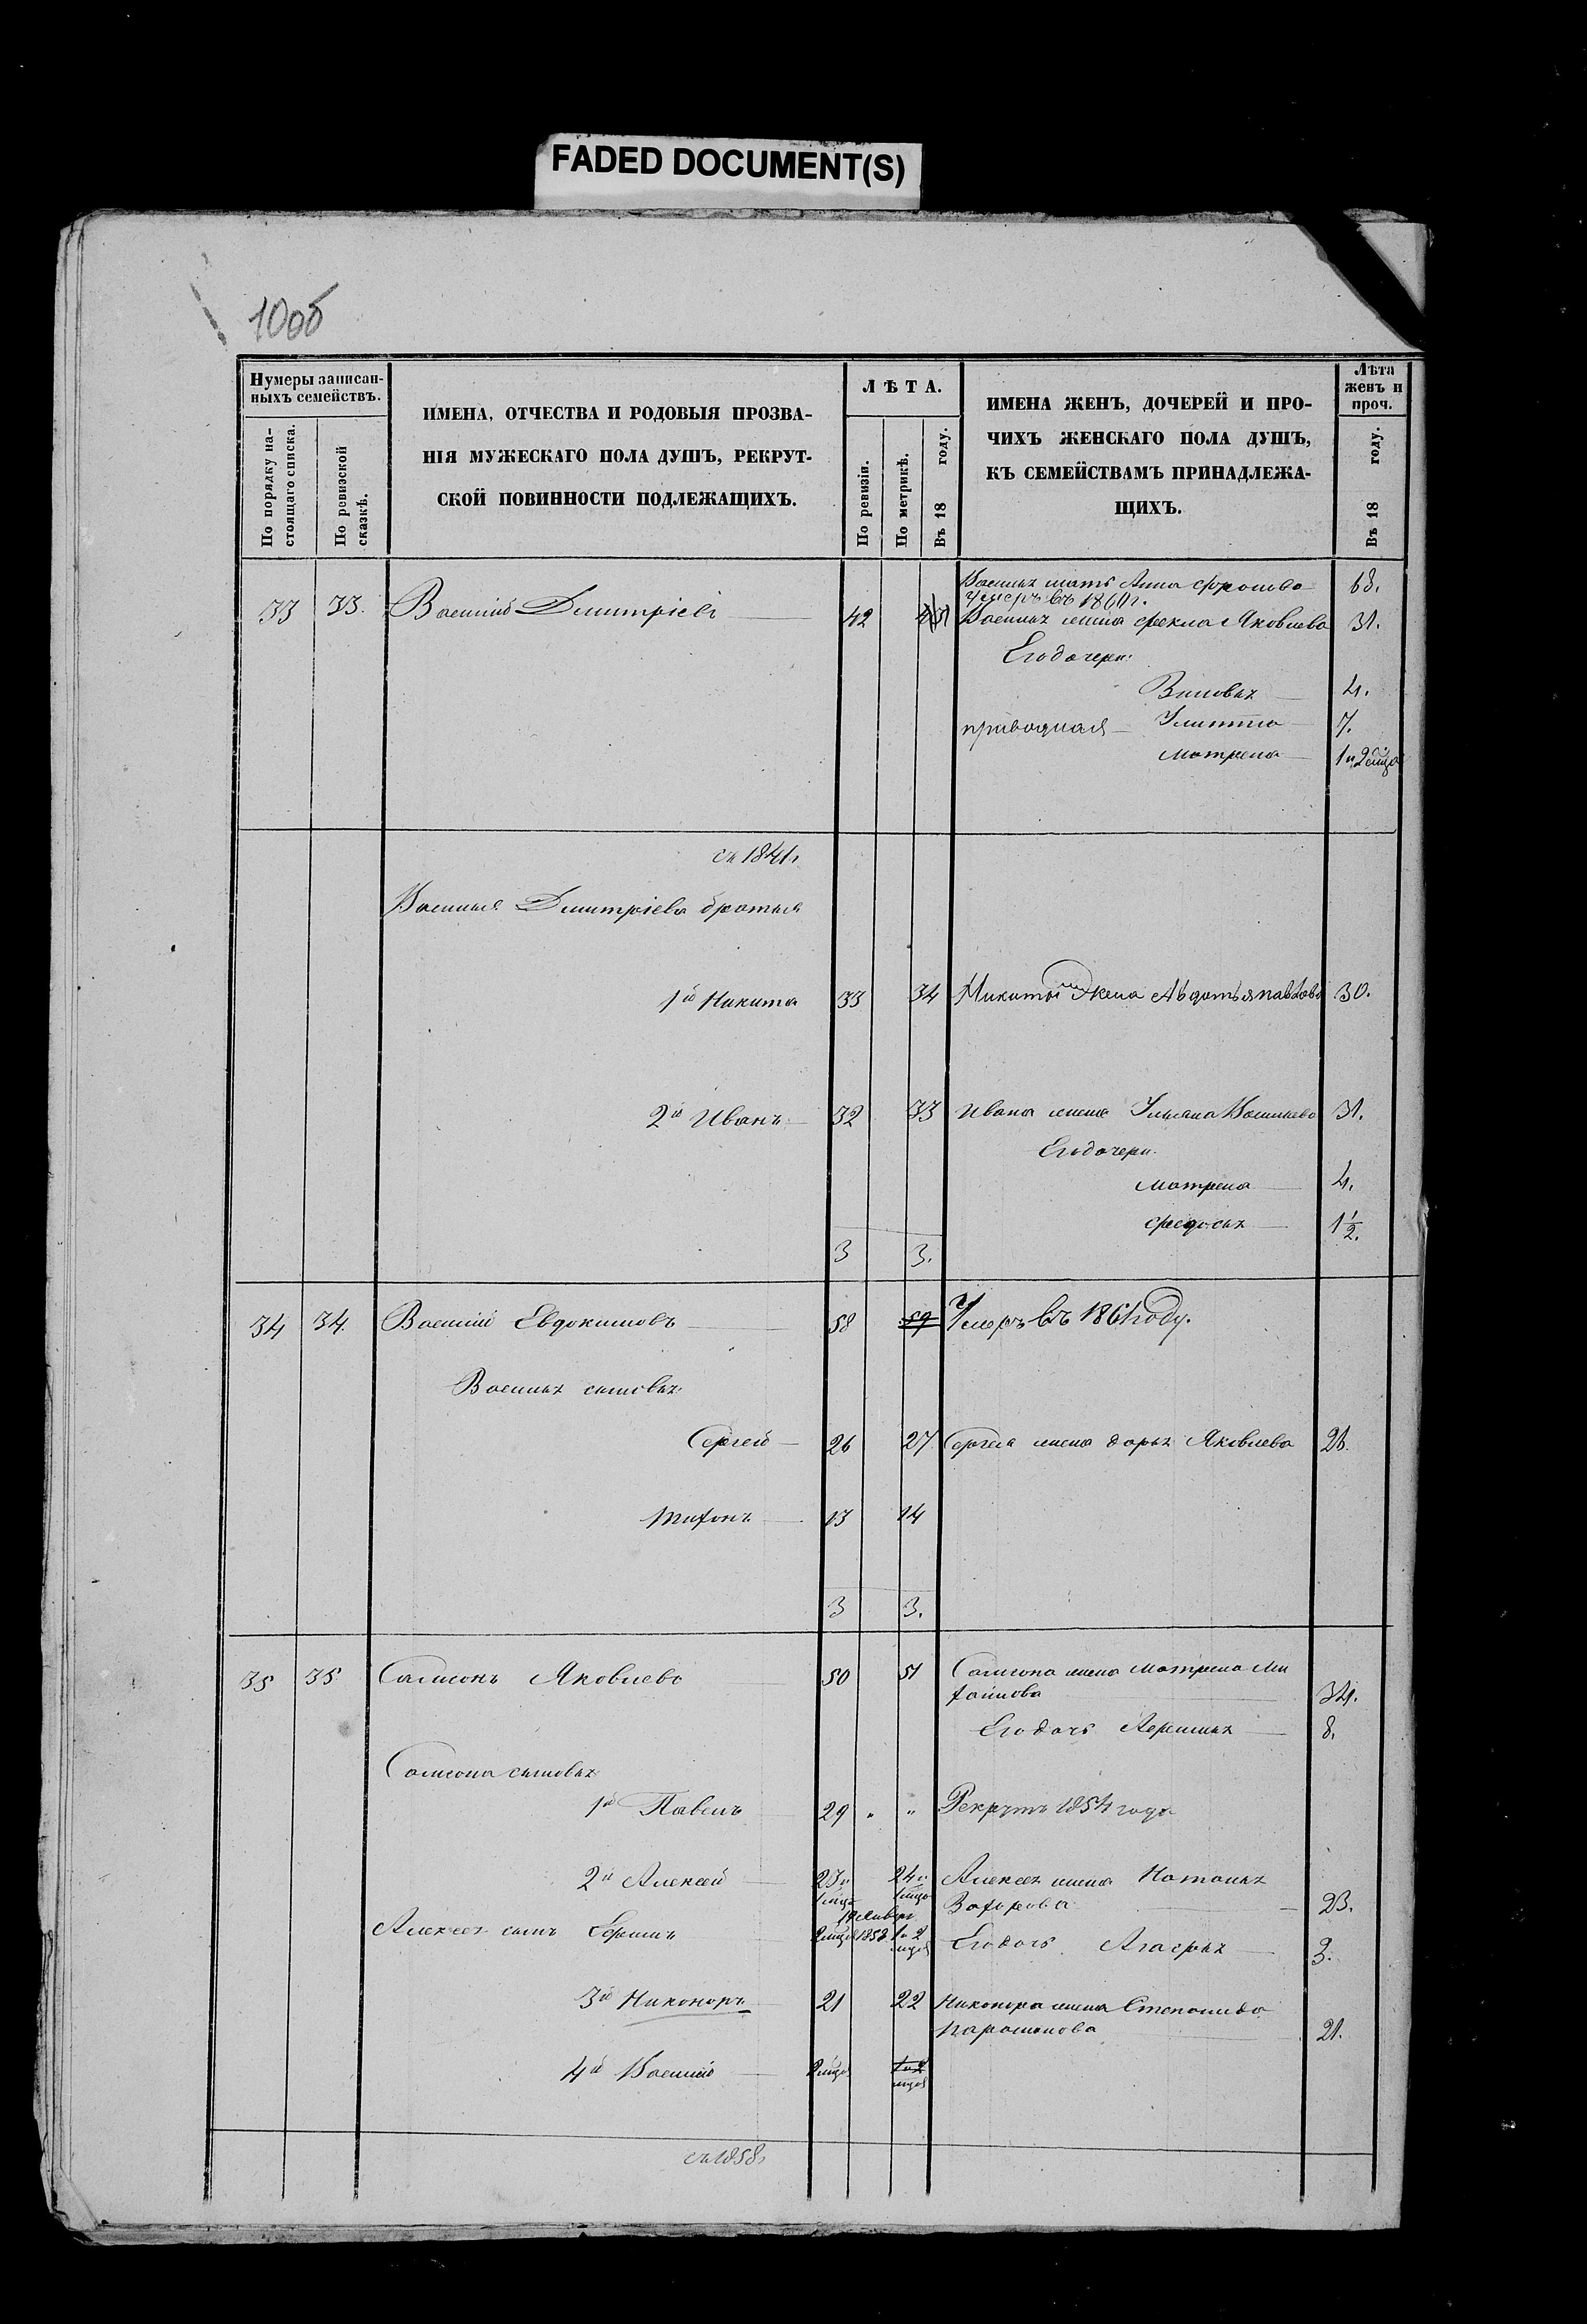 FADED DOCUMENT(S)
10об
Нумеры записан-
ныхъ семействъ.
По порядку на-
стоящаго списка.
По ревизской
сказкѣ.
ИМЕНА, ОТЧЕСТВА И РОДОВЫЯ ПРОЗВА-
НІЯ МУЖЕСКАГО ПОЛА ДУШЪ, РЕКРУТ-
СКОЙ ПОВИННОСТИ ПОДЛЕЖАЩИХЪ.
ЛѢТА.
По ревизіи.
По метрикѣ.
Въ 18 году.
ИМЕНА ЖЕНЪ, ДОЧЕРЕЙ И ПРО-
ЧИХЪ ЖЕНСКАГО ПОЛА ДУШЪ,
КЪ СЕМЕЙСТВАМЪ ПРИНАДЛЕЖА-
ЩИХЪ.
Лѣта
женъ и
проч.
Въ 18 году.
Василья мать Анна Фролова 68.
Умеръ въ 1860 г.
33 33. Василій Дмитріевъ 42 Василья жена Фекла Яковлева 31.
Его дочери:
4.
приводная Улитта 7.
Матрена 1 и 2 мѣца
съ 1841.
Василья Дмитріева братья
1й Никита 33 34 Никиты жена Авдотья Павлова 30.
2й Иванъ 32 33 Ивана жена Ульяна Васильева 31.
Его дочери.
Матрена 4.
Федосья 1 1/2.
3 3.
34 34. Василій Евдокимовъ 58 59 Умеръ въ 1861 году.
Василья сыновья
Сергей 26 27 Сергея жена Дарья Яковлева 26.
Тифонъ 13 14
3 3.
35 35 Самсонъ Яковлевъ 50 51 Самсона жена Матрена Ми
хайлова 34.
Его дочь 8.
Самсона сыновья
1й Павелъ 29 " " Рекрутъ 1854 года
2й Алексей 23 и 24 и Алексея жена Наталья
1 мѣца 1 мѣца Захарова 23.
19 Января
Алексея сынъ Ефимъ 2 мѣца 1858. 1 и 2 Его дочь Агафья 3.
мѣца
3й Никоноръ 21 22 Никонора жена Степанида
Парамонова 21.
4й Василій 2 мѣца 1 и 2
мѣца
съ 1858.